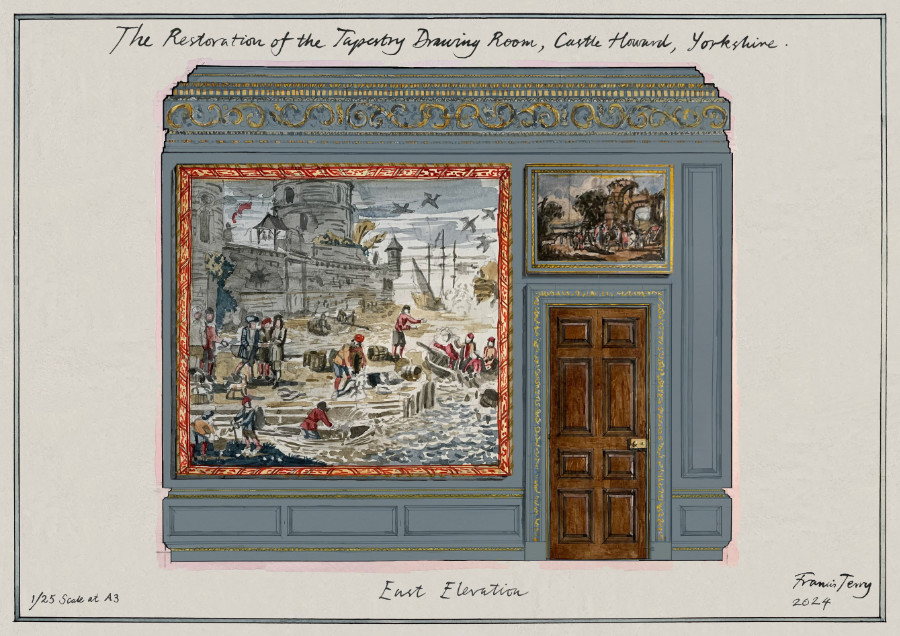 The Restoration of the Tapestry Drawing Room, Castle Howard, Yorkshire.
East Elevation
1/25 Scale at A3
Francis Terry
2024